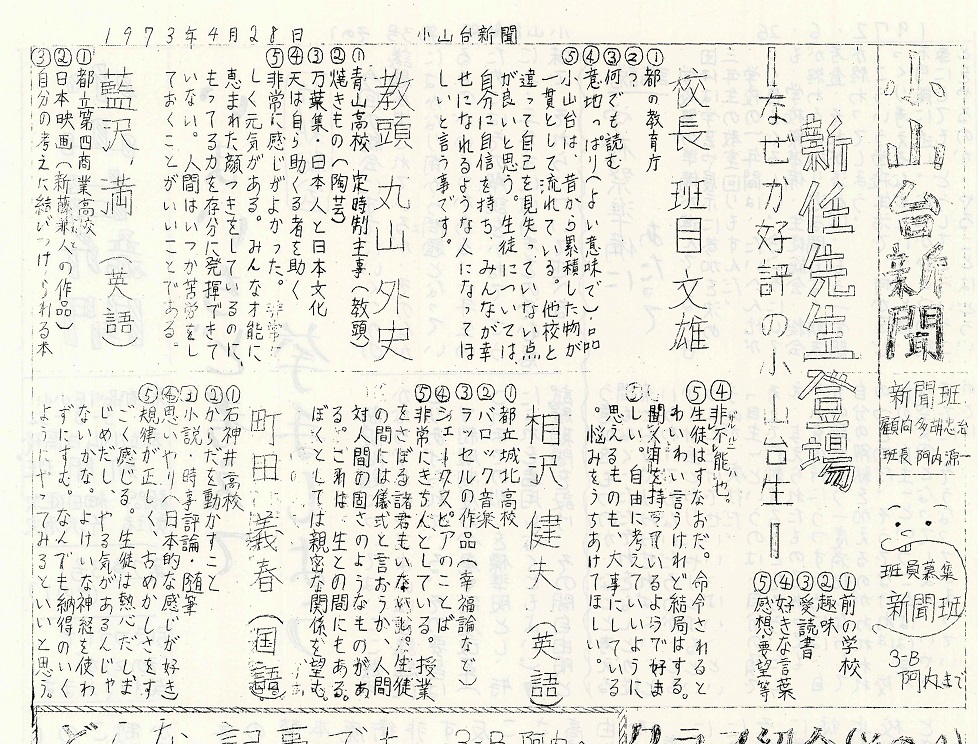 1973年4月28日
小山台新聞
小山台新聞
新聞班
顧問 多胡忠治
班長 阿内源一
班員募集
新聞班
3-B
阿内まで
新任先生登場
―なぜか好評の小山台生―
①前の学校
②趣味
③愛読書
④好きな言葉
⑤感想要望等
校長 班目文雄
①都の教育庁
②?
③何でも読む
④意地っぱり(よい意味で)・品
⑤小山台は、昔から累積した物が
一貫として流れている。他校と
違って自己を見失っていない点
が良いと思う。生徒については、
自分に自信を持ち、みんなが幸
せになれるような人になってほ
しいと言う事です。
教頭 丸山外史
①青山高校、定時制主事(教頭)
②焼きもの(陶芸)
③万葉集・日本人と日本文化
④天は自ら助くる者を助く
⑤非常に感じがよかった。非常
しく元気がある。みんな才能に
恵まれた顔つきをしているのに、
もってる力を存分に発揮できて
いない。人間はいつか苦労をし
ておくことがいいことである。
藍沢 満(英語)
①都立第四商業高校
②日本映画(新藤兼人の作品)
③自分の考えに結びつけられる本
④非不能也。
⑤生徒はすなおだ。命令されると
わいわい言うけれど結局はする。
思えるものも大事にしている
しい。自由に考えていいように
。悩みをうちあけてほしい。
相沢健夫(英語)
①都立城北高校
②バロック音楽
③ラッセルの作品(幸福論など)
④シェークスピアのことば
⑤非常にきちんとしている。授業
をさぼる諸君もいな
の間には儀式と言おうか、人間
対人間の固さのようなものがあ
る。これは、生との間にもある。
ぼくとしては親密な関係を望む。
町田義春(国語)
①石神井高校
②からだを動かすこと
③小説・時事評論・随筆
④思いやり(日本的な感じが好き)
⑤規律が正しく、古めかしさをす
ごく感じる。生徒は熱心だしま
じめだし、やる気があるんじゃ
ないかな。よけいな神経を使わ
ずにすむ。なんでも納得のいく
ようにやってみるといいと思う。
3-B